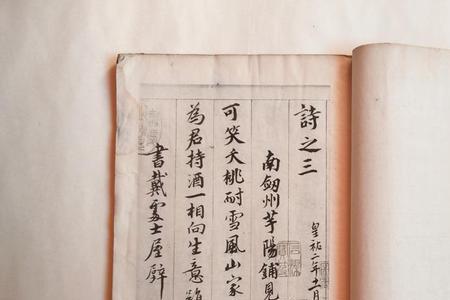 詩之三
皇祐二年十一月
南劔州芋陽鋪見
可笑夭桃耐雪風山家
為君持酒一相向生意
書戴處士屋壁